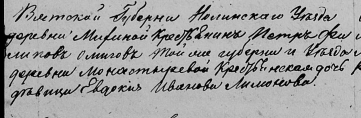 Вятской Губернии Нолинскаго Уезда
деревни Мириной Крестьянинъ Петръ Фи
липовъ Омиговъ той же губернии и Уезда
деревни Монастыревой Крестьянская дочь
девица Евдокия Иванова Лимонова.